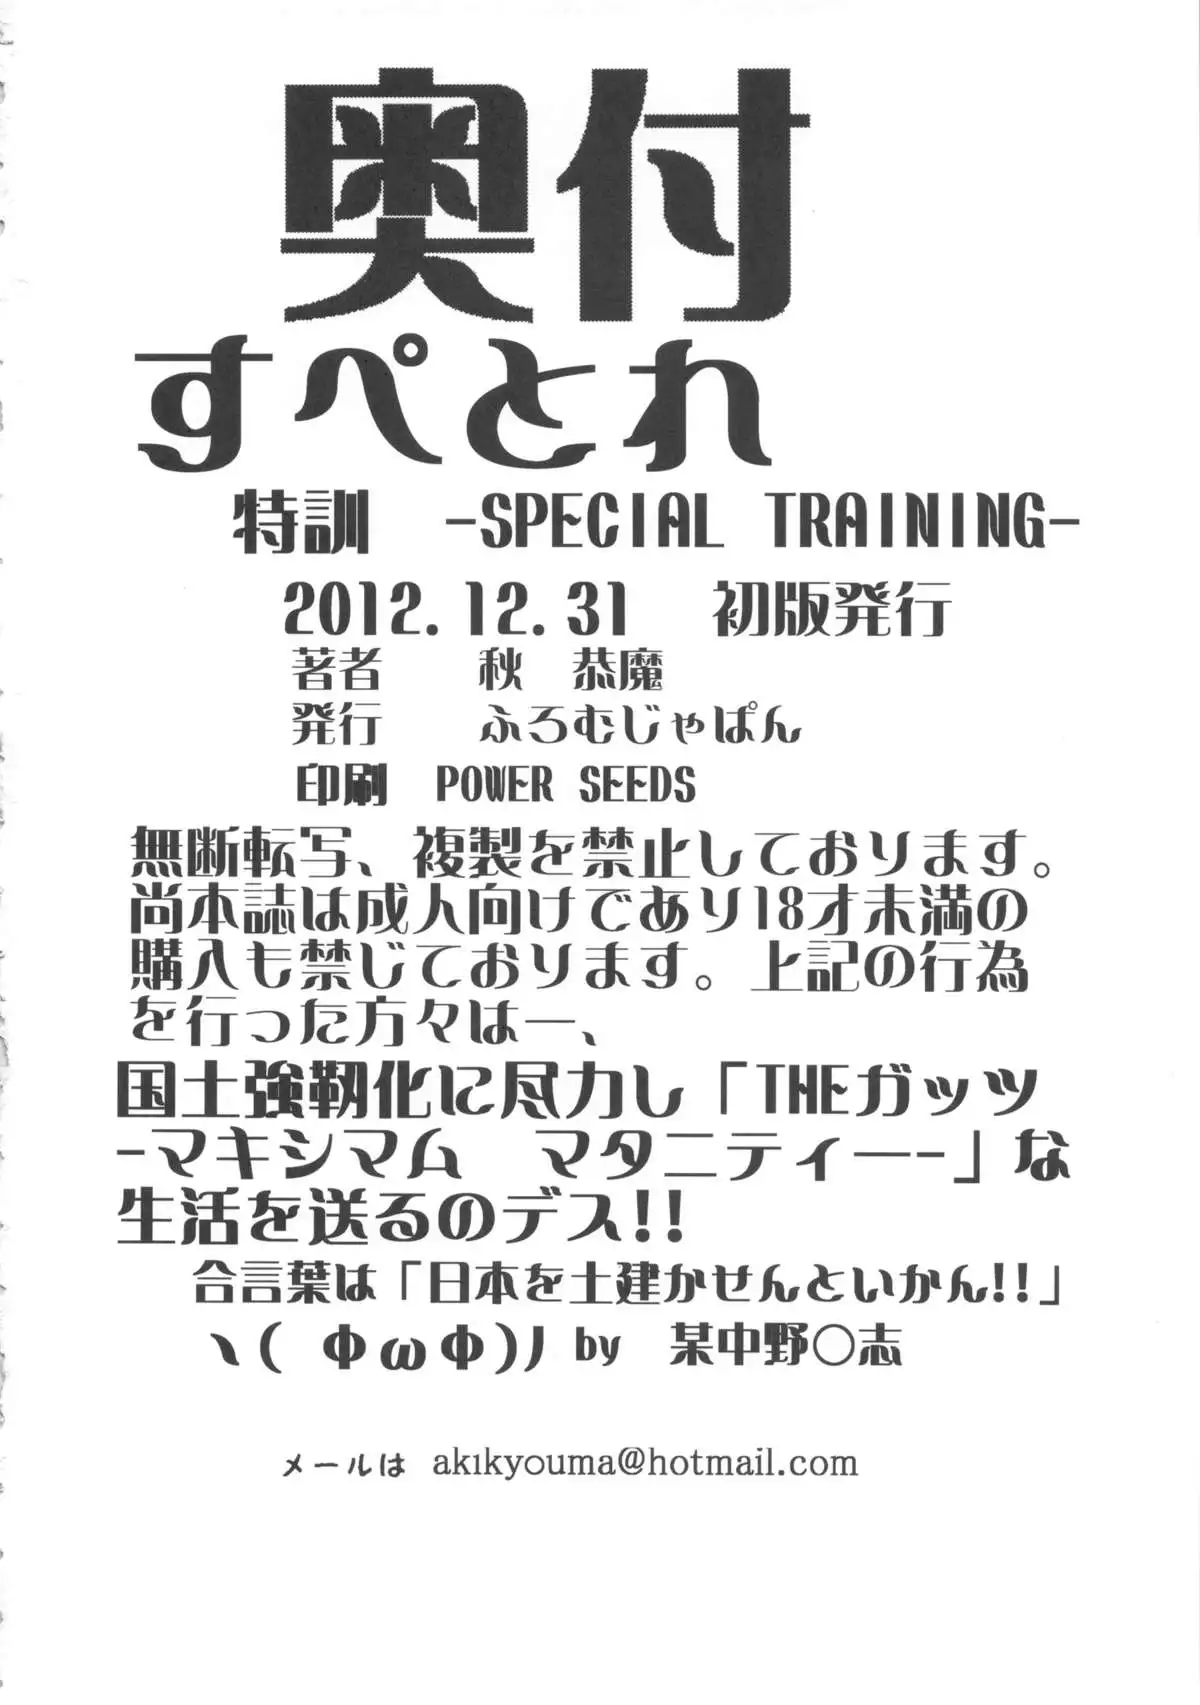 奥付
すぺとれ
特訓　-SPECIAL TRAINING-
2012.12.31　初版発行
著者　秋　恭魔
発行　ふろむじゃぱん
印刷　POWER SEEDS
無断転写、複製を禁止しております。
尚本誌は成人向けであり18才未満の
購入も禁じております。上記の行為
を行った方々はー、
国土強靭化に尽力し「THEガッツ
-マキシマム　マタニティー-」な
生活を送るのデス!!
合言葉は「日本を土建かせんといかん!!」
ヽ( ΦωΦ)丿by　某中野〇志
メールは　akikyouma@hotmail.com